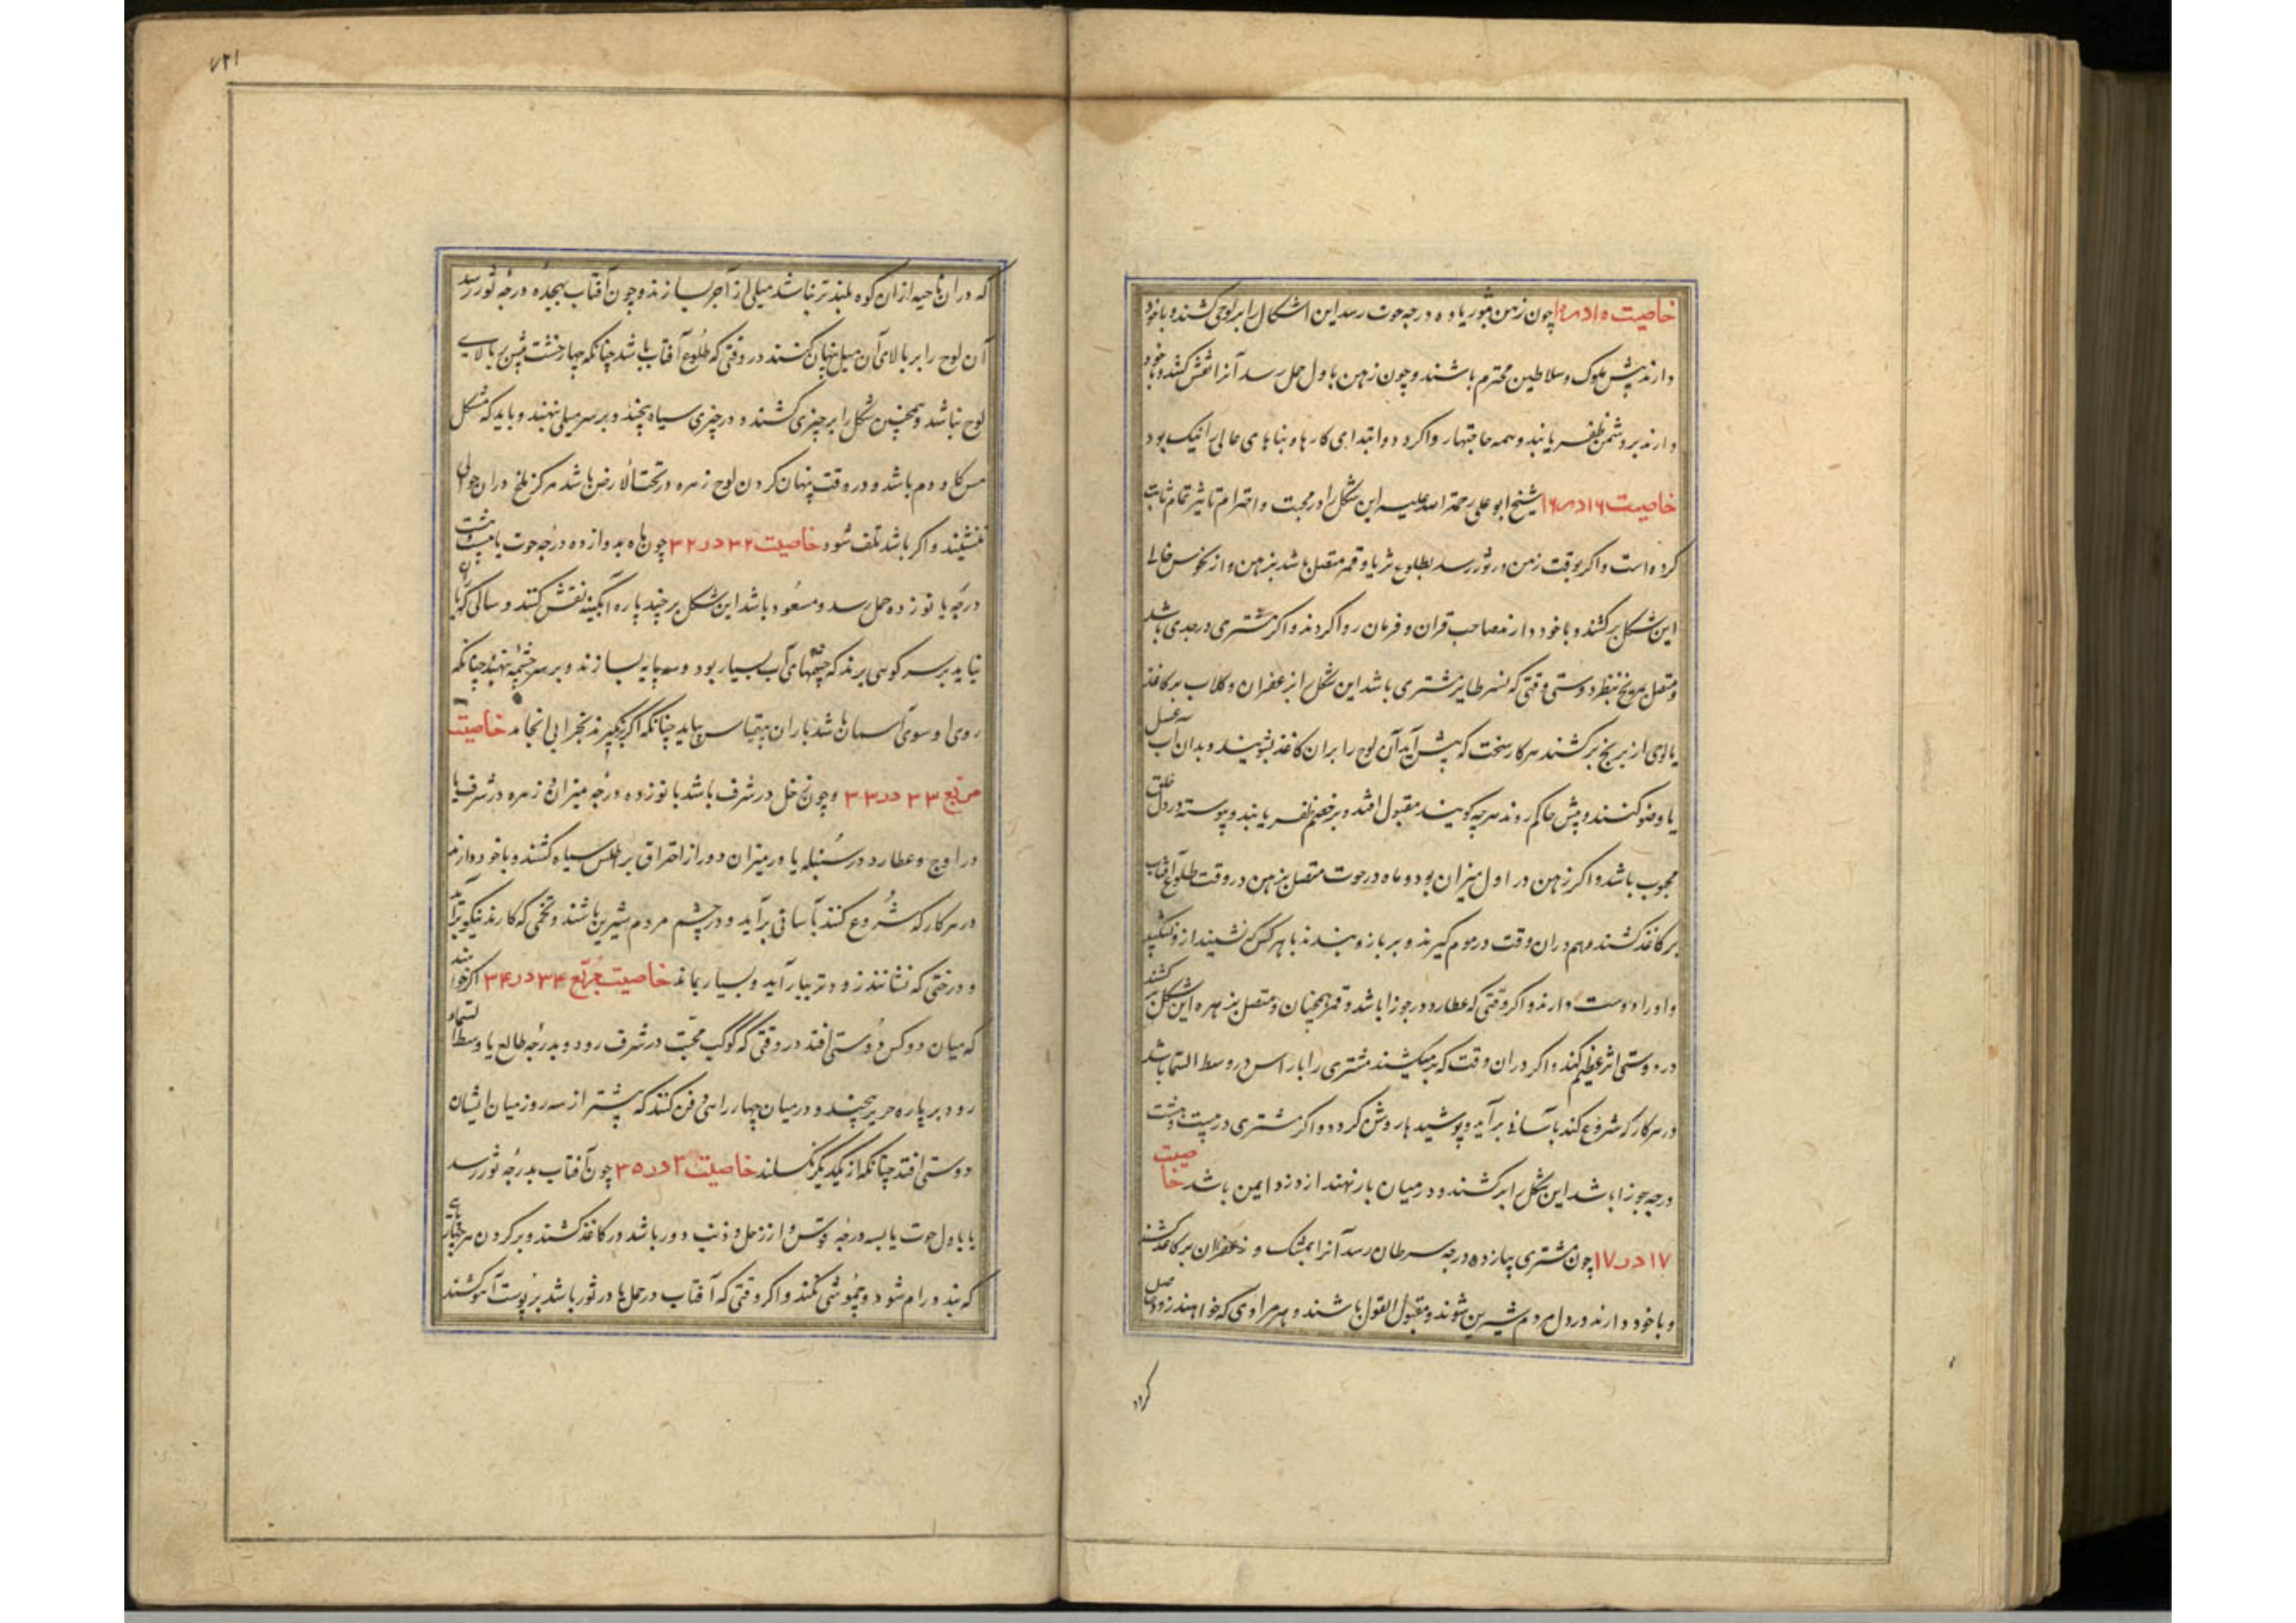 خاصیت ۱۵ در ۱۵ چون زهره بثور یا ده درجه حوت رسد این اشکال را بر لوحی کشند و با خود
دارند پیش ملوک و سلاطین محترم باشند و چون زهره باول حمل رسد آنرا نقش کنند و با خود
دارند بر دشمن ظفر یابند و همه حاجتها روا کردد و ابتدای کارها و بناهای عالی را نیک بود
خاصیت ۱۶ در ۱۶ شیخ ابو علی رحمة الله علیه این شکل را در محبت و احترام تاثیر تمام ثابت
کرده است و اکر بوقت زهره در ثور رسد بطلوع ثریا و قمر متصل باشد بزهره و از نحوس خالی
این شکل برکشند و با خود دارند صاحب قران و فرمان روا کردند و اکر مشتری در جدی باشد
و متصل بمریخ بنظر دوستی وقتی که نسر طایر مشتری باشد این شکل را بزعفران و کلاب بر کاغذ
یا لوحی از برنج برکشند هر کار سخت که پیش آید آن لوح را بران کاغذ بشویند و بدان آب غسل
یا وضو کنند و پیش حاکم روند هرچه کویند مقبول افتد و بر خصم ظفر یابند و پیوسته در دل خلق
محبوب باشد و اکر زهره در اول میزان بود و ماه در حوت متصل بزهره در وقت طلوع آفتاب
بر کاغذ کشند و هم دران وقت در موم کیرند و بر بازو بندند با هر کس که نشیند ازو نشکیبد
و او را دوست دارند و اکر وقتی که عطارد در جوزا باشد و قمر همچنان و متصل بزهره این شکل بر کشند
در دوستی اثر عظیم کند و اکر دران وقت که بر میکشند مشتری را با راس در وسط السما باشد
در هر کار که شروع کند بآسانی برآید و پوشیدها روشن کردد و اکر مشتری در بیست و هشت
درجه جوزا باشد این شکل را بر کشند و در میان بار نهند از دزد ایمن باشد خاصیت
۱۷ در ۱۷ چون مشتری بپازده درجه سرطان رسد آنرا بمشک و زعفران بر کاغذ کشند
و با خود دارند در دل مردم شیرین شوند و مقبول القول باشند و هر مرادی که خواهند زود حاصل
کردد
۴۲۱
که دران ناحیه ازان کوه بلندتر نباشد میلی از آجر بسازند و چون آفتاب بهجده درجه ثور رسد
آن لوح را بر بالای آن میل پنهان کنند در وقتی که طلوع آفتاب باشد چنانکه چهار خشت بیش بر بالای
لوح نباشد و همچنین شکل را بر چیزی کشند و در چیزی سیاه پیچند و بر سر میلی نهند و باید که شکل
و دم باشد و در وقت پنهان کردن لوح زهره در تحت الارض باشد هرکز ملخ دران حوالی
ننشیند و اکر باشد تلف شود خاصیت ۳۲ در ۳۲ چون ماه بدوازده درجه حوت یا بیست و هشت
درجه یا نوزده حمل رسد و مسعود باشد این شکل بر چند پاره آبکینه نقش کنند و سالی که باران
نیاید بر سر کوهی برند که چشمهای آب بسیار بود و سه پایه بسازند و بر سر چشمه نهند چنانکه
روی او سوی آسمان باشد باران بیقیاس بیاید چنانکه اکر برنکیرند بخرابی انجامد خاصیت
مربع ۳۳ در ۳۳ و چون زحل در شرف باشد یا نوزده درجه میزان و زهره در شرف یا
در اوج و عطارد در سنبله یا در میزان دور از احتراق بر اطلس سیاه کشند و با خود دارند
در هر کار که شروع کنند بآسانی برآید و در چشم مردم شیرین باشند و تخمی که کارند نیکو برآید
و درختی که نشانند زودتر ببار آید و بسیار بماند خاصیت مربع ۳۴ در ۳۴ اکر خواهند
که میان دو کس دوستی افتد در وقتی که کوکب محبت در شرف رود و بدرجه طالع یا وسط السماء
رود بر پاره حریر پیچند و در میان چهار راهی دفن کنند که پیشتر از سه روز میان ایشان
دوستی افتد چنانکه از یکدیگر نکسلند خاصیت ۳ در ۳۵ چون آفتاب بدرجه ثور رسد
یا باول حوت یا بسه درجه قوس و از زحل و ذنب دور باشد در کاغذ کشند و بر کردن هر چهارپای
که بندد رام شود و چموشی نکند و اکر وقتی که آفتاب در حمل یا در ثور باشد بر پوست آهو کشند